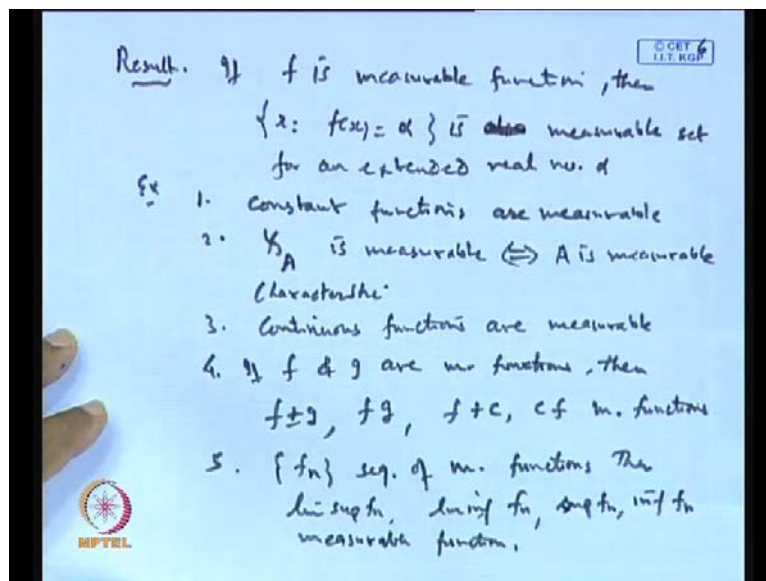 © CET 6
I.I.T. KGP
Result. If f is measurable function, then
{x: f(x) = α} is measurable set
for an extended real no. α
Ex
1. Constant functions are measurable
2. χ_A is measurable ⇔ A is measurable
Characteristic
3. Continuous functions are measurable
4. If f & g are m. functions, then
f±g, fg, f+c, cf m. functions
5. {fn} seq. of m. functions Then
lim sup fn, lim inf fn, sup fn, inf fn
measurable function.
NPTEL